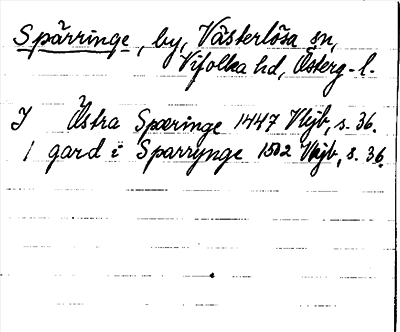 Spärringe, by, Västerlösa sn,
Vifolka hd, Österg-l.
I Östra Spæringe 1447 Vkjb, s. 36.
1 gard i Sparrynge 1502 Vkjb, s. 36.